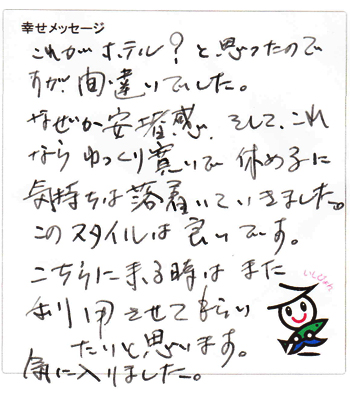 幸せメッセージ
これがホテル？と思ったので
すが、間違いでした。
なぜか安堵感、そして、これ
なら ゆっくり寛いで 休める に
気持ちは落着いていきました。
このスタイルは良いです。
こちらに来る時は また
利用させてもらい
たいと思います。
気に入りました。